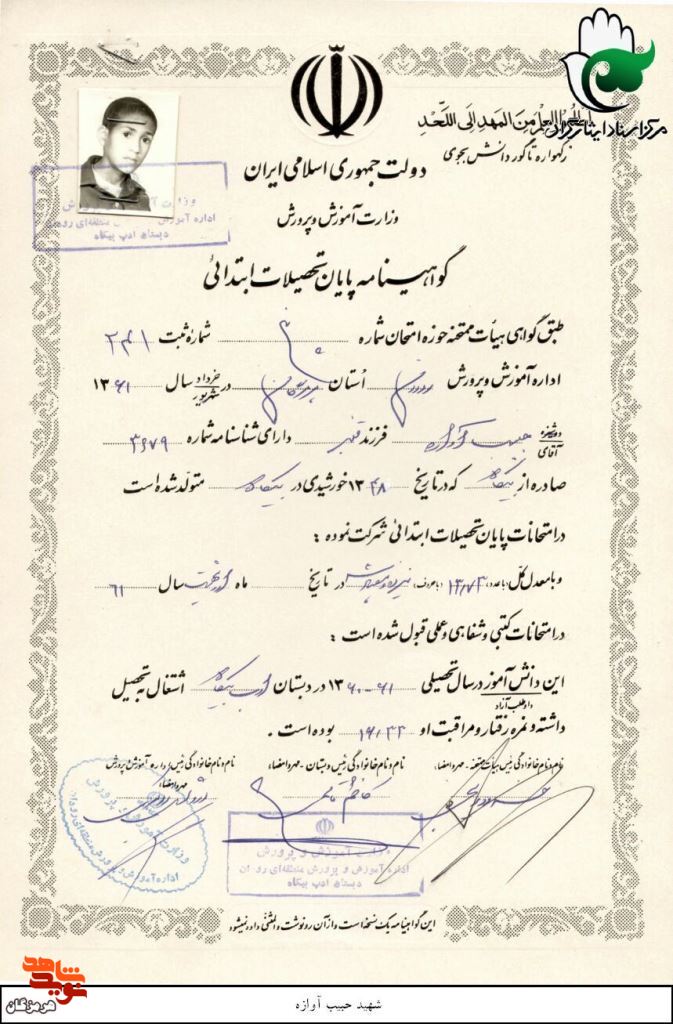 مرکز اسناد ایثارگران
اطلبوا العلم من المهد الی اللحد
ز گهواره تا گور دانش بجوی
دولت جمهوری اسلامی ایران
وزارت آموزش و پرورش
دبستان ادب بیکاه
گواهینامه پایان تحصیلات ابتدائی
طبق گواهی هیأت ممتحنه حوزه امتحان شماره شمارهٔ ثبت ۲۴۱
اداره آموزش و پرورش رودان اُستان هرمزگان در خرداد شهریور سال ۱۳۶۱
دوشیزه آقای حبیب آوازه فرزند قنبر دارای شناسنامه شماره ۳۶۷۹
صادره از بیکاه که در تاریخ ۱۳۴۸ خورشیدی در بیکاه متولّد شده است
در امتحانات پایان تحصیلات ابتدائی شرکت نموده :
و با معدل کل (با عدد) ۱۳/۷۳ (با حروف) در تاریخ ماه سال ۶۱
در امتحانات کتبی و شفاهی و عملی قبول شده است :
این دانش آموز داوطلب آزاد در سال تحصیلی ۶۱-۱۳۶۰ در دبستان ادب بیکاه اشتغال به تحصیل
داشته و نمره رفتار و مراقبت او بوده است .
نام و نام خانوادگی رئیس هیأت ممتحنه - مهر و امضاء : نام و نام خانوادگی رئیس دبستان - مهر و امضاء : نام و نام خانوادگی رئیس اداره آموزش و پرورش
مهر و امضاء :
وزارت آموزش و پرورش
اداره آموزش و پرورش منطقه‌ای رودان
دبستان ادب بیکاه
این گواهینامه یک نسخه است و از آن رونوشت و المثنی داده نمیشود
نوید شاهد
هرمزگان
شهید حبیب آوازه